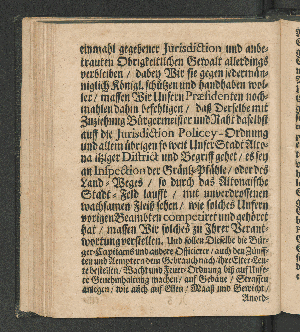 einmahl gegebener Jurisdiction und anbe-
trauten Obrigkeitlichen Gewalt allerdings
verbleiben / dabey Wir sie gegen jedermän-
niglich Königl. schützen und handhaben wol-
len / massen Wir Unsern Præsidenten noch-
mahlen dahin befehligen / daß Derselbe mit
Zuziehung Bürgermeister und Raht daselbst
auff die Jurisdiction Policey-Ordnung
und allem übrigen so weit Unser Stadt Alto-
na itziger District und Begriff gehet / es sey
an Inspection der Gräntz-Pfähle / oder des
Land-Weges / so durch das Altonaische
Stadt-Feld laufft / mit unverdrossenen
wachsamen Fleiß sehen / wie solches Unsern
vorigen Beambten competiret und gehöret
hat / massen Wir solches zu Ihrer Verant-
wortung verstellen. Und sollen Dieselbe die Bür-
ger-Capitains und andere Officierer / auch den Zünff-
ten und Aemptern dem Gebrauch nach ihre Elter-Leu-
te bestellen / Wacht und Feuer-Ordnung biß auff Unse-
re Genehmhaltung machen / auff Gebäue / Strassen
anlegen / wie auch auf Ellen / Maaß und Gewicht /
Anord-